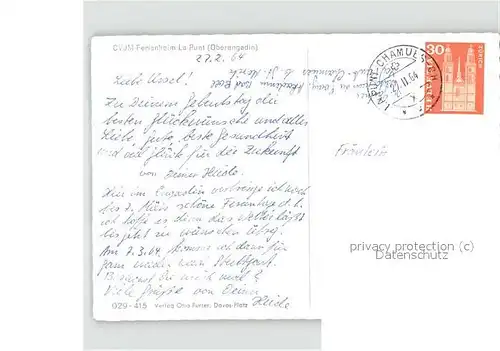 CVJM-Ferienheim La Punt (Oberengadin)
27.2.64
Liebe Ursel!
Zu Deinem Geburtstag die
besten Glückwünsche und alles
Liebe, Gute, beste Gesundheit
und viel Glück für die Zukunft
von Deiner Heide.
Hier im Engadin verbringe ich noch
bis 7. März schöne Ferientage d.h.
ich hoffe es denn das Wetter läßt
bis jetzt zu wünschen übrig.
Am 7.3.64 komme ich dann für
ganz wieder nach Stuttgart.
Viele Grüße von Deiner
Heide
029-415 Verlag Otto Furter, Davos-Platz
LA PUNT-CHAMUES-CH
27.II.64
30
HELVETIA
ZÜRICH
Fräulein
privacy protection (c)
Datenschutz